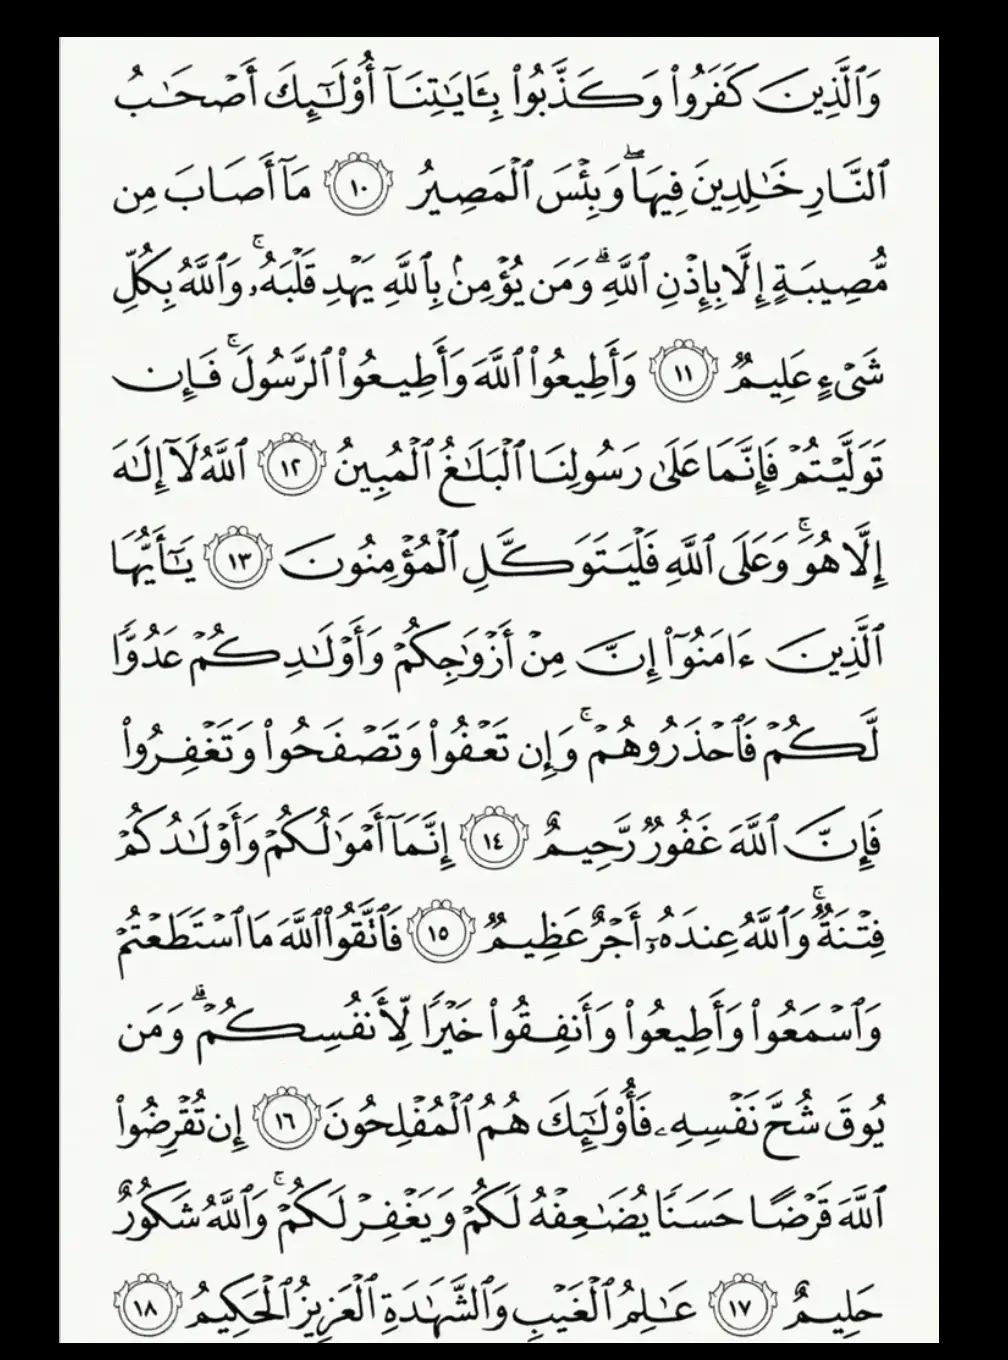 وَٱلَّذِينَ كَفَرُوا۟ وَكَذَّبُوا۟ بِـَٔايَـٰتِنَآ أُو۟لَـٰٓئِكَ أَصۡحَـٰبُ
ٱلنَّارِ خَـٰلِدِينَ فِيهَاۖ وَبِئۡسَ ٱلۡمَصِيرُ ١٠ مَآ أَصَابَ مِن
مُّصِيبَةٍ إِلَّا بِإِذۡنِ ٱللَّهِۗ وَمَن يُؤۡمِنۢ بِٱللَّهِ يَهۡدِ قَلۡبَهُۥۚ وَٱللَّهُ بِكُلِّ
شَىۡءٍ عَلِيمٌ ١١ وَأَطِيعُوا۟ ٱللَّهَ وَأَطِيعُوا۟ ٱلرَّسُولَۚ فَإِن
تَوَلَّيۡتُمۡ فَإِنَّمَا عَلَىٰ رَسُولِنَا ٱلۡبَلَـٰغُ ٱلۡمُبِينُ ١٢ ٱللَّهُ لَآ إِلَـٰهَ
إِلَّا هُوَۚ وَعَلَى ٱللَّهِ فَلۡيَتَوَكَّلِ ٱلۡمُؤۡمِنُونَ ١٣ يَـٰٓأَيُّهَا
ٱلَّذِينَ ءَامَنُوٓا۟ إِنَّ مِنۡ أَزۡوَٰجِكُمۡ وَأَوۡلَـٰدِكُمۡ عَدُوًّا
لَّكُمۡ فَٱحۡذَرُوهُمۡۚ وَإِن تَعۡفُوا۟ وَتَصۡفَحُوا۟ وَتَغۡفِرُوا۟
فَإِنَّ ٱللَّهَ غَفُورٌ رَّحِيمٌ ١٤ إِنَّمَآ أَمۡوَٰلُكُمۡ وَأَوۡلَـٰدُكُمۡ
فِتۡنَةٌۚ وَٱللَّهُ عِندَهُۥٓ أَجۡرٌ عَظِيمٌ ١٥ فَٱتَّقُوا۟ ٱللَّهَ مَا ٱسۡتَطَعۡتُمۡ
وَٱسۡمَعُوا۟ وَأَطِيعُوا۟ وَأَنفِقُوا۟ خَيۡرًا لِّأَنفُسِكُمۡۗ وَمَن
يُوقَ شُحَّ نَفۡسِهِۦ فَأُو۟لَـٰٓئِكَ هُمُ ٱلۡمُفۡلِحُونَ ١٦ إِن تُقۡرِضُوا۟
ٱللَّهَ قَرۡضًا حَسَنًا يُضَـٰعِفۡهُ لَكُمۡ وَيَغۡفِرۡ لَكُمۡۚ وَٱللَّهُ شَكُورٌ
حَلِيمٌ ١٧ عَـٰلِمُ ٱلۡغَيۡبِ وَٱلشَّهَـٰدَةِ ٱلۡعَزِيزُ ٱلۡحَكِيمُ ١٨